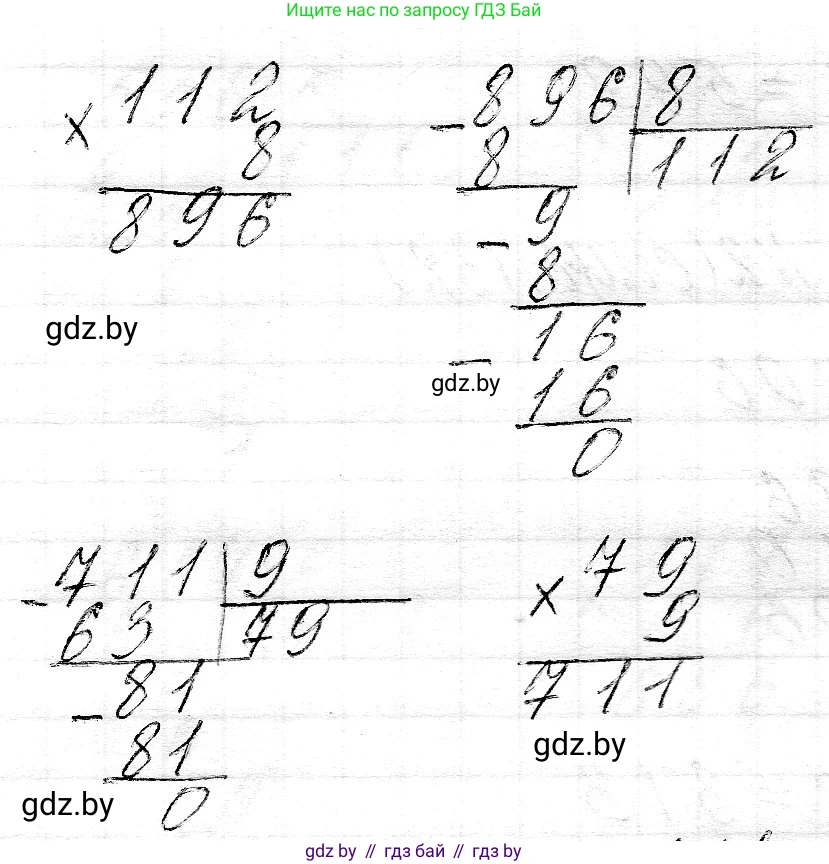 Ищите нас по запросу ГДЗ Бай
× 112
8
896
gdz.by
- 896 | 8
8 112
- 9
8
- 16
gdz.by
16
0
- 711 | 9
63 79
- 81
81
gdz.by
0
× 79
9
711
gdz.by
gdz by // гдз бай // гдз by